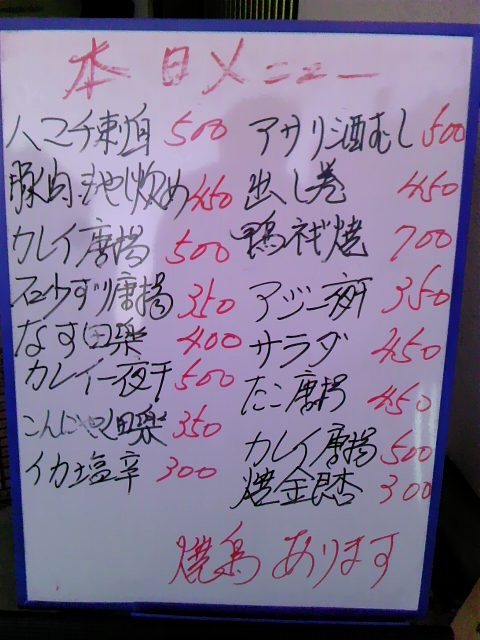 本日メニュー
ハマチ刺身 500
豚肉 炒め 450
カレイ唐揚 500
砂ずり唐揚 350
なす田楽 400
カレイ一夜干 500
こんにゃく田楽 350
イカ塩辛 300
アサリ酒むし 500
出し巻 450
鴨ネギ焼 700
アジ一夜干 350
サラダ 450
たこ唐揚 450
カレイ唐揚 500
焼金銀杏 300
焼鳥あります